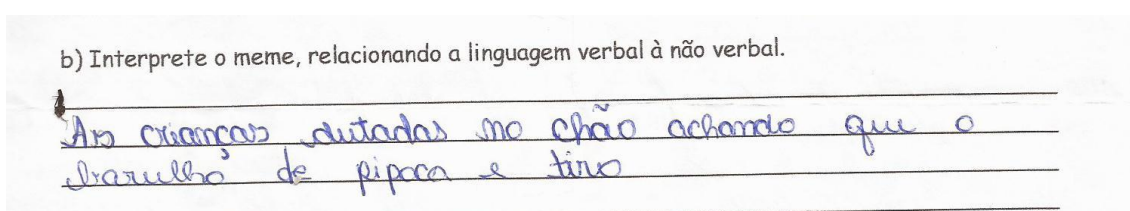 b) Interprete o meme, relacionando a linguagem verbal à não verbal.
As crianças dutadas no chão achando que o
barulho de pipoca e tiro